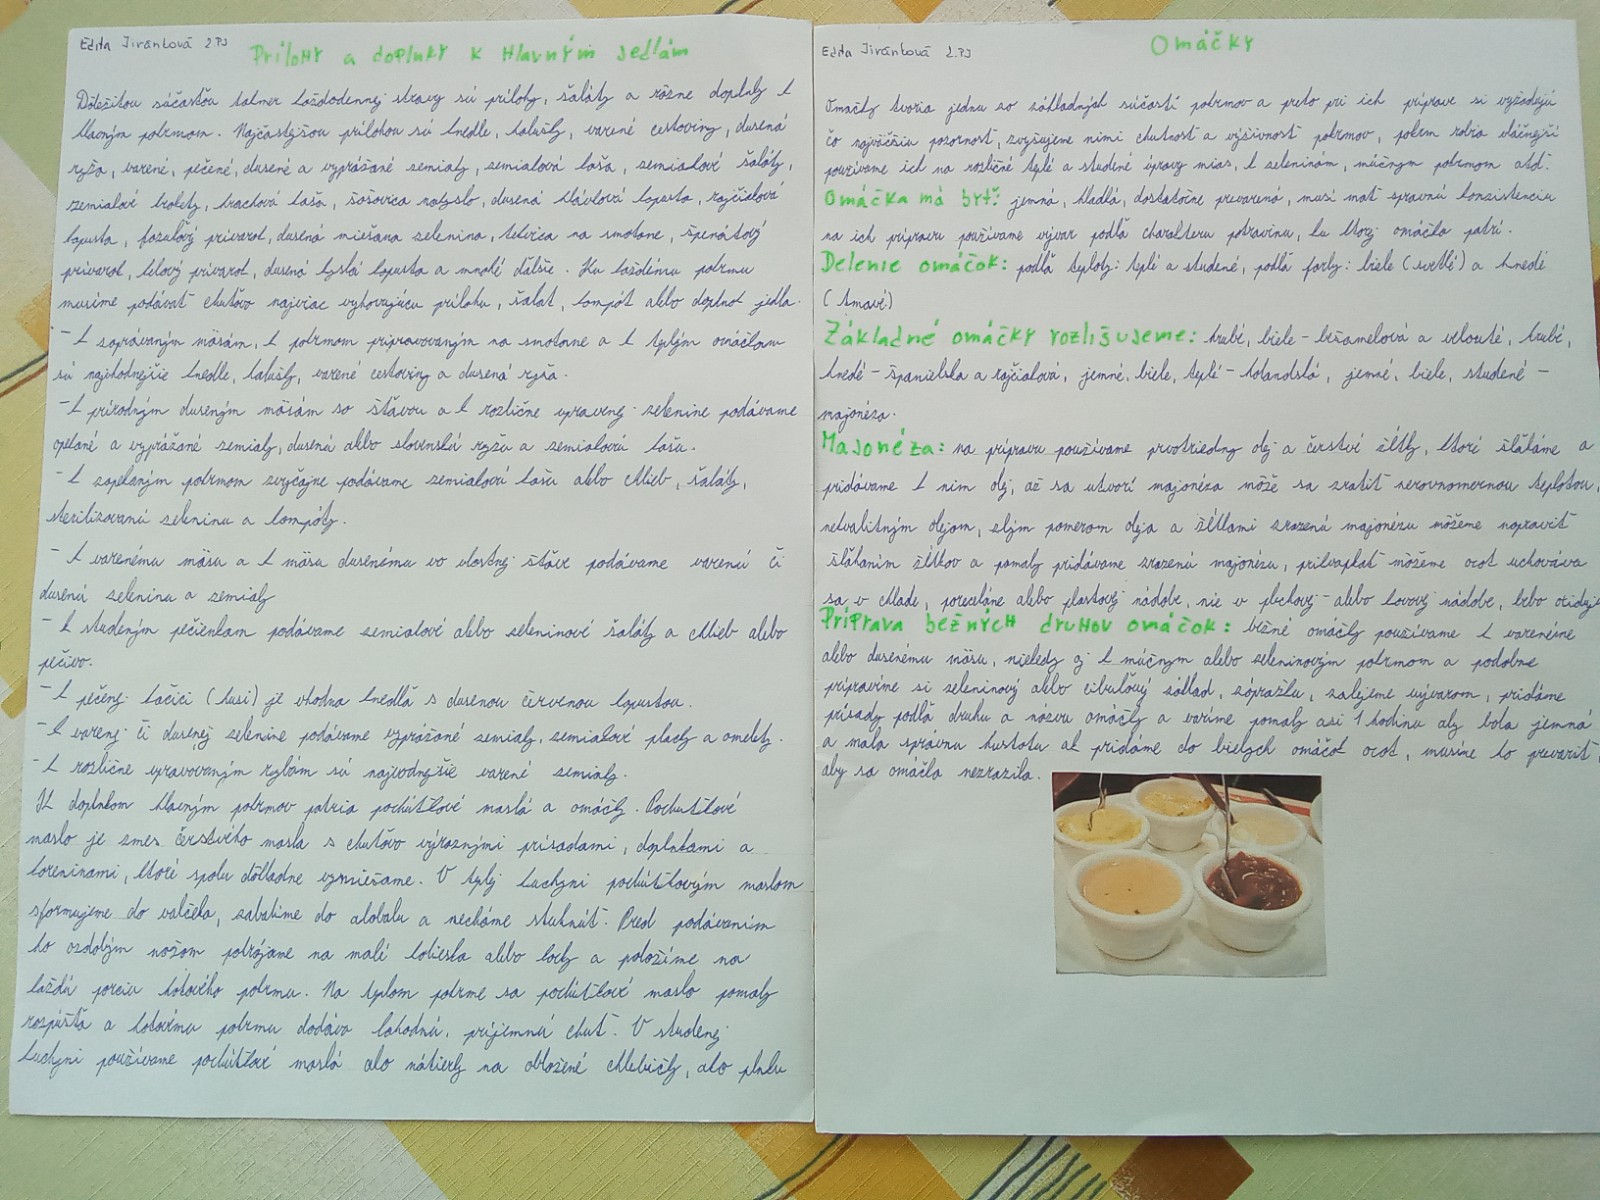 Edita Jiránková 2.PJ
Prílohy a doplnky k hlavným jedlám
Dôležitou súčasťou takmer každodennej stravy sú prílohy, šaláty a rôzne doplnky k
hlavným pokrmom. Najčastejšou prílohou sú knedle, halušky, varené cestoviny, dusená
ryža, varené, pečené, dusené a vyprážané zemiaky, zemiaková kaša, zemiakové šaláty,
zemiakové krokety, hrachová kaša, šošovica nakyslo, dusená hlávková kapusta, rajčiaková
kapusta, fazuľový prívarok, dusená miešana zelenina, tekvica na smotane, špenátový
prívarok, kelový prívarok, dusená kyslá kapusta a mnohé ďalšie. Ku každému pokrmu
musíme podávať chuťovo najviac vyhovujúcu prílohu, šalát, kompót alebo doplnok jedla.
- k zaprávaným mäsám, k pokrmom pripravovaným na smotane a k teplým omáčkam
sú najvhodnejšie knedle, halušky, varené cestoviny a dusená ryža.
- k prírodným duseným mäsám so šťavou a k rozlične upravenej zelenine podávame
opekané a vyprážané zemiaky, dusenú alebo slovenskú ryžu a zemiakovú kašu.
- k zapekaným pokrmom zvyčajne podávame zemiakovú kašu alebo chlieb, šaláty,
sterilizovanú zeleninu a kompóty.
- k varenému mäsu a k mäsu dusenému vo vlastnej šťave podávame varenú či
dusenú zeleninu a zemiaky
- k studeným pečienkam podávame zemiakové alebo zeleninové šaláty a chlieb alebo
pečivo.
- k pečenej kačici (husi) je vhodna knedľa s dusenou červenou kapustou.
- k varenej či dusenej zelenine podávame vyprážané zemiaky, zemiakové placky a omelety.
- k rozlične upravovaným rybám sú najvodnejšie varené zemiaky.
K doplnkom hlavným pokrmov patria pochúťkové maslá a omáčky. Pochuťkové
maslo je zmes čerstvého masla s chuťovo výraznými prísadami, doplnkami a
koreninami, ktoré spolu dôkladne vymiešame. V teplej kuchyni pochúťkovým maslom
sformujeme do valčeka, zabalíme do alobalu a necháme stuhnúť. Pred podávaním
ho ozdobým nožom pokrájame na malé kolieska alebo kocky a položíme na
každú porciu hotového pokrmu. Na teplom pokrme sa pochúťkové maslo pomaly
rozpúšťa a hotovému pokrmu dodáva lahodnú, príjemnú chuť. V studenej
kuchyni používame pochúťkové maslá ako nátierky na obložené chlebíčky, ako plnku
Edita Jiránková 2.PJ
Omáčky
Omáčky tvoria jednu zo základných súčastí pokrmov a preto pri ich príprave si vyžadujú
čo najväčšiu pozornosť, zvyšujeme nimi chutnosť a výživnosť pokrmov, pokrm robia vláčnejší
používame ich na rozličné teplé a studené úpravy mias, k zeleninam, múčnym pokrmom atď.
Omáčka má byť: jemná, hladká, dostatočne prevarená, musí mať spravnú konzistenciu
na ich prípravu používame vývar podľa charakteru potravinu, ku ktorej omáčka patrí.
Delenie omáčok: podľa teploty: teplé a studené, podľa farby: biele (svetlé) a hnedé
(tmavé)
Základné omáčky rozlišujeme: hrubé, biele - bešamelová a velouté, hrubé,
hnedé - španielska a rajčiaková, jemné, biele, teplé - holandská, jemné, biele, studené -
majonéza.
Majonéza: na prípravu používame prvotriedny olej a čerstvé žĺtky, ktoré šľaháme a
pridávame k nim olej, až sa utvorí majonéza môže sa zraziť nerovnomernou teplotou,
nekvalitným olejom, zlým pomerom oleja a žĺtkami zrazenú majonézu môžeme napraviť
šľahaním žĺtkov a pomaly pridávame zrazenú majonézu, prikvapkať môžeme ocot uchováva
sa v chlade, porceláne alebo plastovej nádobe, nie v plechovej alebo kovovej nádobe, lebo oxiduje
Príprava bežných druhov omáčok: bežné omáčky používame k varenéme
alebo dusenému mäsu, niekedy aj k múčnym alebo zeleninovým pokrmom a podobne
pripravíme si zeleninový alebo cibuľový základ, zápražku, zalejeme vývarom, pridáme
prísady podľa druhu a názvu omáčky a varíme pomaly asi 1 hodinu aby bola jemná
a mala správnu hustotu ak pridáme do bielych omáčok ocot, musíme ho prevariť
aby sa omáčka nezrazila.